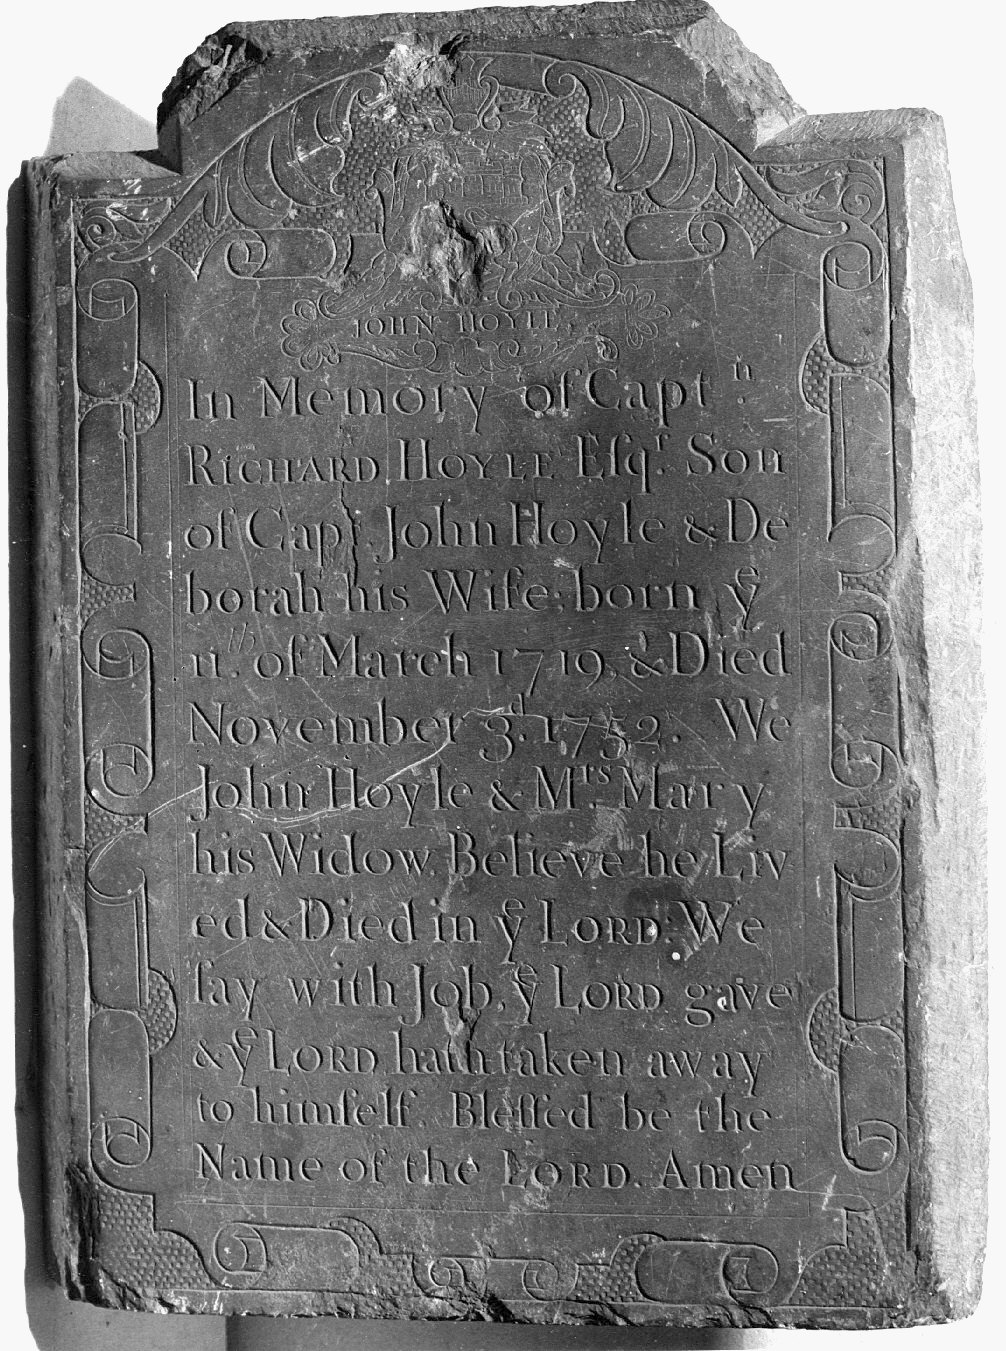 JOHN HOYLE
In Memory of Capt.ⁿ
RICHARD HOYLE Eſqʳ. Son
of Capᵗ. John Hoyle & De
borah his Wife; born yᵉ
11.ᵗʰ of March 1719, & Died
November 3.ᵈ 1752. We
John Hoyle & Mʳˢ. Mary
his Widow. Believe he Liv
ed & Died in yᵉ LORD: We
ſay with Job, yᵉ LORD gave
& yᵉ LORD hath taken away
to himſelf. Bleſſed be the
Name of the LORD. Amen